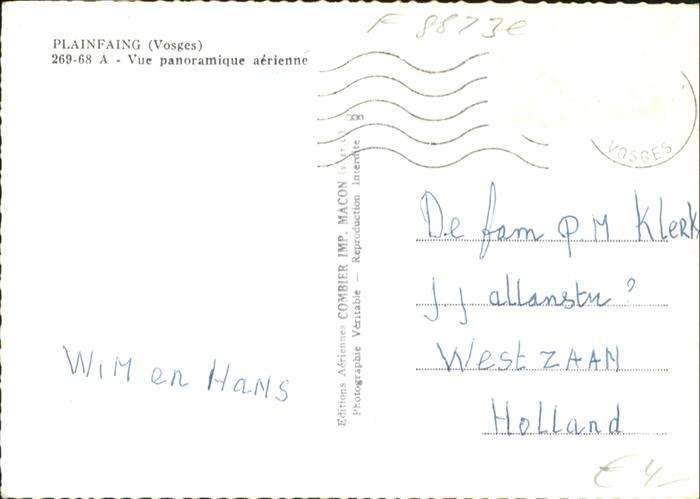 F 8873e
PLAINFAING (Vosges)
269-68 A - Vue panoramique aérienne
VOSGES
Editions Aériennes COMBIER IMP. MACON
Photographie Véritable — Reproduction Interdite
De fam P.M Klerk
j j allanstr ?
West ZAAN
Holland
WiM en HaNS
€ 4-